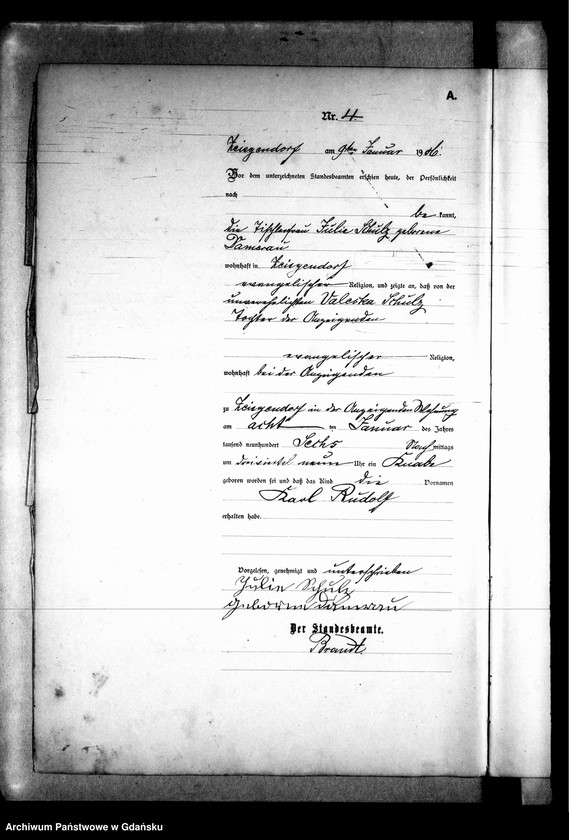 A.
Nr. 4
Zeisgendorf am 9ten Januar 1906.
Vor dem unterzeichneten Standesbeamten erschien heute, der Persönlichkeit
nach
be kannt,
die Tischlerfrau Julie Schulz geborene
Damerau
wohnhaft in Zeisgendorf
evangelischer Religion, und zeigte an, daß von der
unverehelichten Valeska Schulz
Tochter der Anzeigenden
evangelischer Religion,
wohnhaft bei der Anzeigenden
zu Zeisgendorf in der Anzeigenden Wohnung
am acht ten Januar des Jahres
tausend neunhundert Sechs Nach mittags
um dreiviertel neun Uhr ein Knabe
geboren worden sei und daß das Kind die Vornamen
Karl Rudolf
erhalten habe.
Vorgelesen, genehmigt und unterschrieben
Julie Schulz
geborene Damerau
Der Standesbeamte.
Brandt
Archiwum Państwowe w Gdańsku